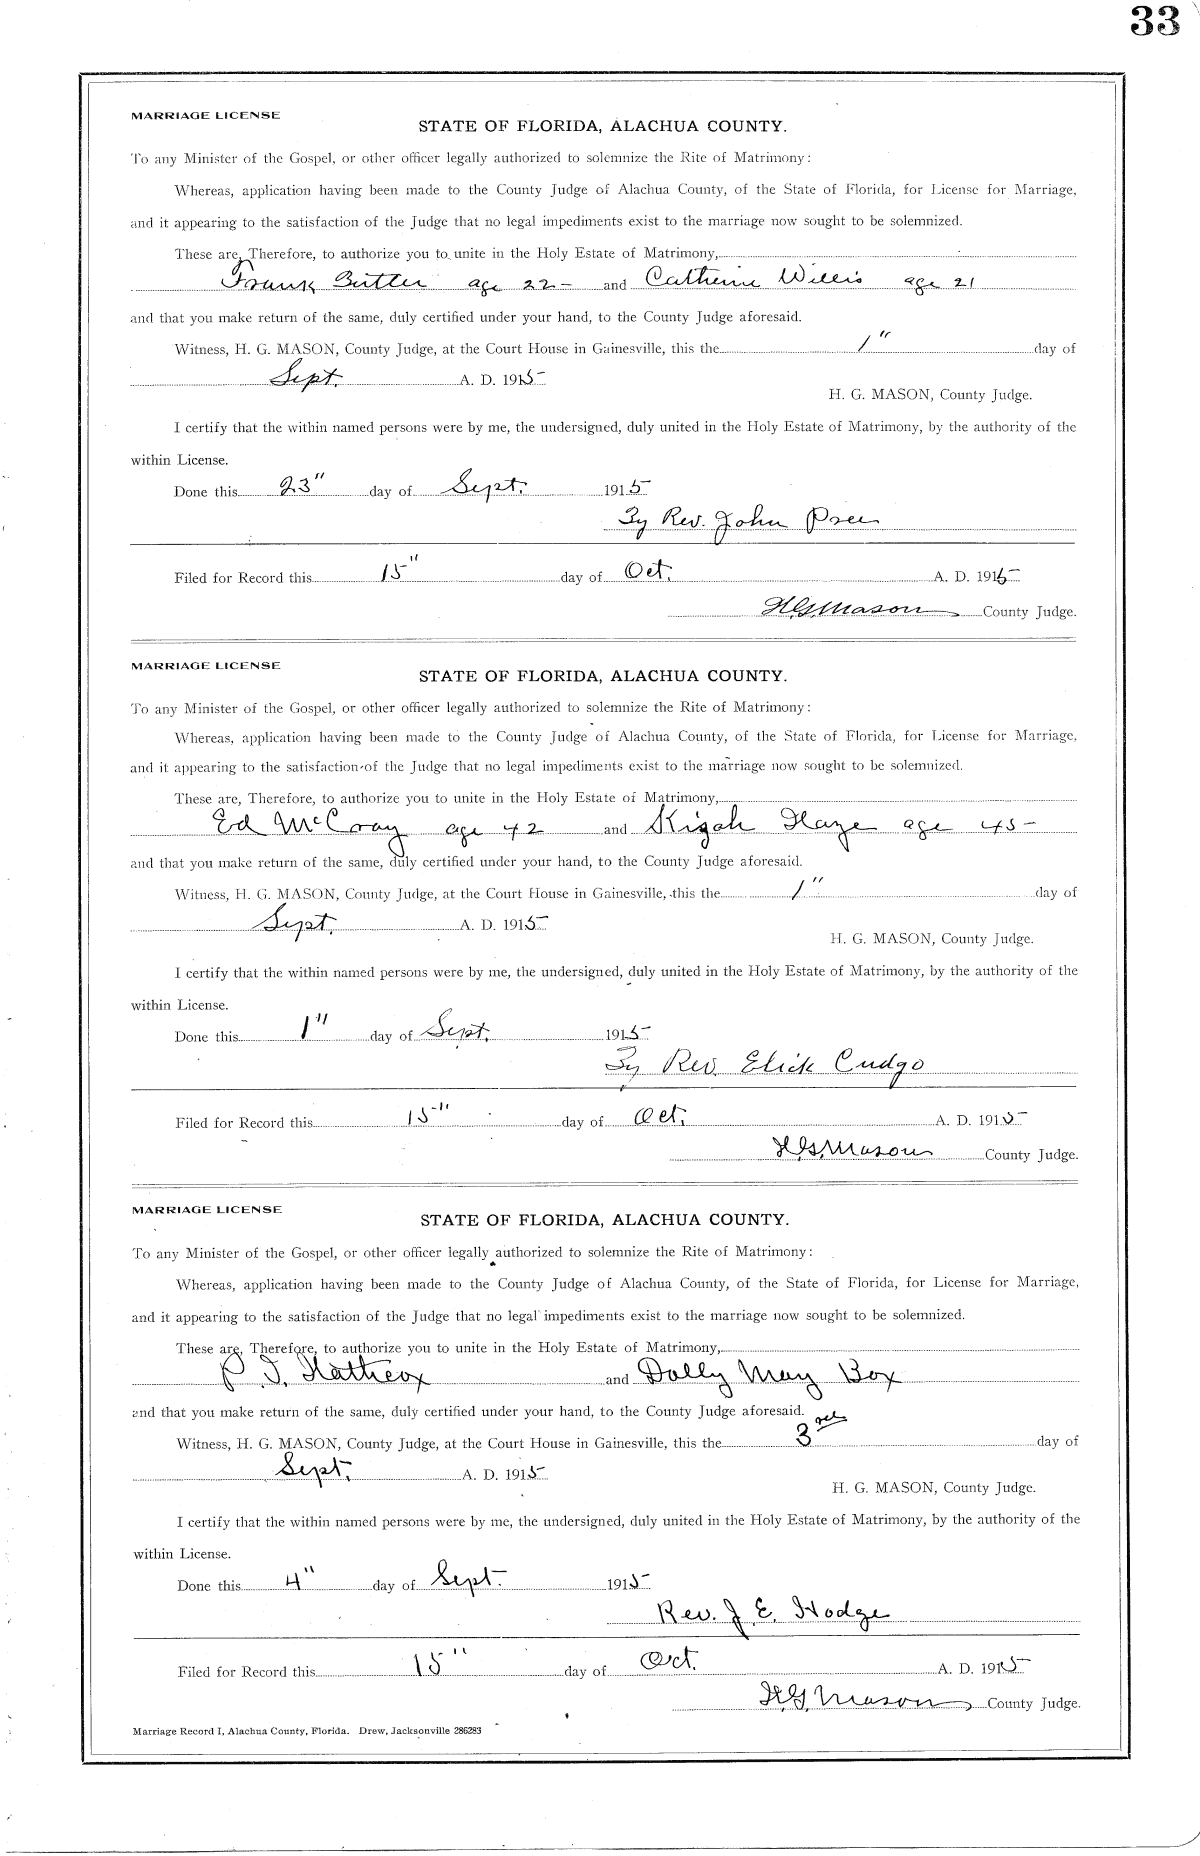 33
MARRIAGE LICENSE
STATE OF FLORIDA, ALACHUA COUNTY.
To any Minister of the Gospel, or other officer legally authorized to solemnize the Rite of Matrimony:
Whereas, application having been made to the County Judge of Alachua County, of the State of Florida, for License for Marriage,
and it appearing to the satisfaction of the Judge that no legal impediments exist to the marriage now sought to be solemnized.
These are, Therefore, to authorize you to unite in the Holy Estate of Matrimony,
Frank Butler age 22 - and Catherine Willis age 21
and that you make return of the same, duly certified under your hand, to the County Judge aforesaid.
Witness, H. G. MASON, County Judge, at the Court House in Gainesville, this the 1" day of
Sept. A. D. 1915
H. G. MASON, County Judge.
I certify that the within named persons were by me, the undersigned, duly united in the Holy Estate of Matrimony, by the authority of the
within License.
Done this 23" day of Sept. 1915
By Rev. John
Filed for Record this 15" day of Oct. A. D. 1915
H.G. Mason County Judge.
MARRIAGE LICENSE
STATE OF FLORIDA, ALACHUA COUNTY.
To any Minister of the Gospel, or other officer legally authorized to solemnize the Rite of Matrimony:
Whereas, application having been made to the County Judge of Alachua County, of the State of Florida, for License for Marriage,
and it appearing to the satisfaction of the Judge that no legal impediments exist to the marriage now sought to be solemnized.
These are, Therefore, to authorize you to unite in the Holy Estate of Matrimony,
Ed McCray age 42 and Kizah Haze age 45 -
and that you make return of the same, duly certified under your hand, to the County Judge aforesaid.
Witness, H. G. MASON, County Judge, at the Court House in Gainesville, this the 1" day of
Sept. A. D. 1915
H. G. MASON, County Judge.
I certify that the within named persons were by me, the undersigned, duly united in the Holy Estate of Matrimony, by the authority of the
within License.
Done this 1" day of Sept. 1915
By Rev. Elick Cudgo
Filed for Record this 15" day of Oct. A. D. 1915
H.G. Mason County Judge.
MARRIAGE LICENSE
STATE OF FLORIDA, ALACHUA COUNTY.
To any Minister of the Gospel, or other officer legally authorized to solemnize the Rite of Matrimony:
Whereas, application having been made to the County Judge of Alachua County, of the State of Florida, for License for Marriage,
and it appearing to the satisfaction of the Judge that no legal impediments exist to the marriage now sought to be solemnized.
These are, Therefore, to authorize you to unite in the Holy Estate of Matrimony,
P. T. Hathcox and Dolly May Box
and that you make return of the same, duly certified under your hand, to the County Judge aforesaid.
Witness, H. G. MASON, County Judge, at the Court House in Gainesville, this the 3rd day of
Sept. A. D. 1915
H. G. MASON, County Judge.
I certify that the within named persons were by me, the undersigned, duly united in the Holy Estate of Matrimony, by the authority of the
within License.
Done this 4" day of Sept. 1915
Rev. J. E. Hodge
Filed for Record this 15" day of Oct. A. D. 1915
H.G. Mason County Judge.
Marriage Record I, Alachua County, Florida. Drew, Jacksonville 286283